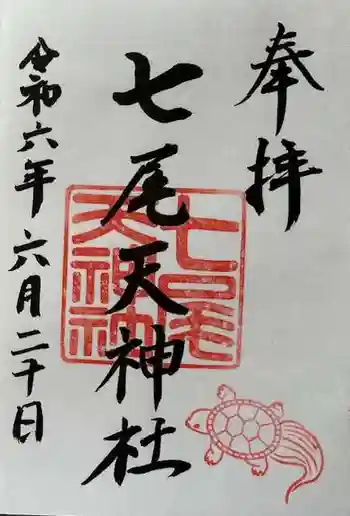 奉拝
七尾天神社
令和六年六月二十日
七尾天神社